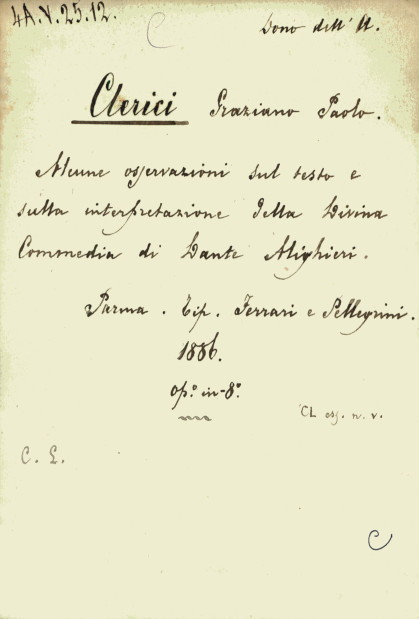 4A.V.25.12.
Dono dell'A.
Clerici Graziano Paolo.
Alcune osservazioni sul testo e
sulla interpretazione della Divina
Commedia di Dante Alighieri.
Parma. Tip. Ferrari e Pellegrini.
1886.
op.° in-8°.
CL esg. n. v.
C. L.
C